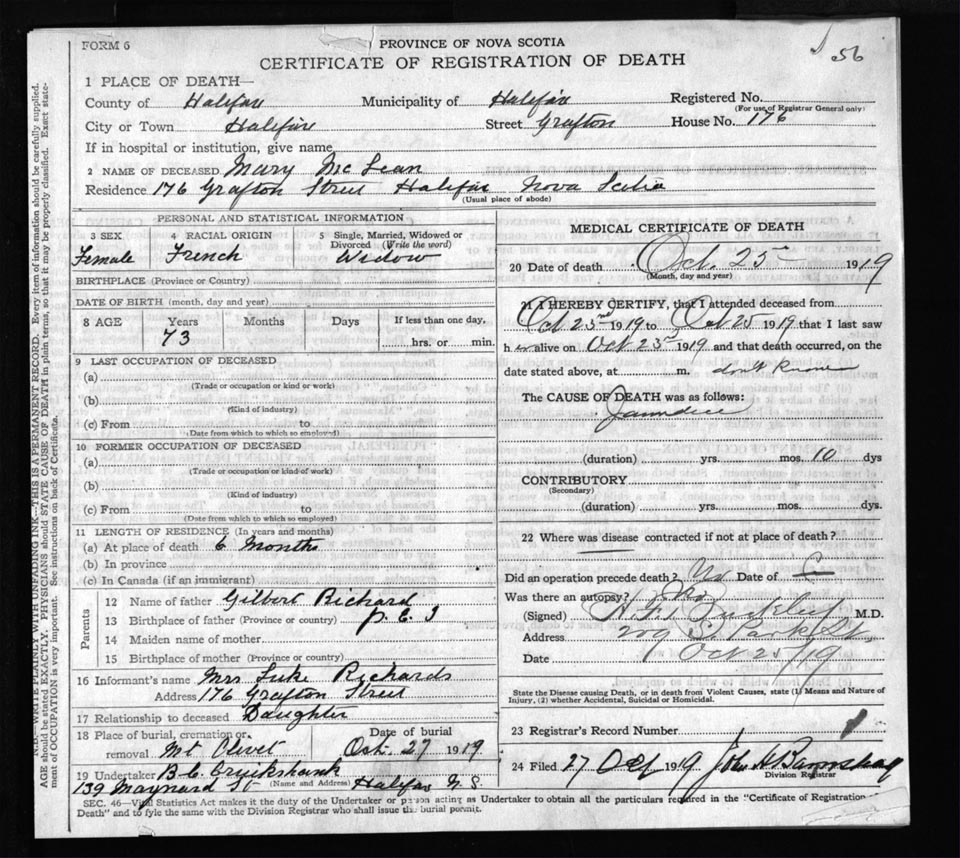 FORM 6
PROVINCE OF NOVA SCOTIA
CERTIFICATE OF REGISTRATION OF DEATH
56
1 PLACE OF DEATH—
County of Halifax Municipality of Halifax Registered No.
(For use of Registrar General only)
City or Town Halifax Street Grafton House No. 176
If in hospital or institution, give name
2 NAME OF DECEASED Mary McLean
Residence 176 Grafton Street Halifax Nova Scotia
(Usual place of abode)
PERSONAL AND STATISTICAL INFORMATION
3 SEX 4 RACIAL ORIGIN 5 Single, Married, Widowed or Divorced (Write the word)
Female French Widow
BIRTHPLACE (Province or Country)
DATE OF BIRTH (month, day and year)
8 AGE Years Months Days If less than one day,
73 hrs. or min.
9 LAST OCCUPATION OF DECEASED
(a)
(Trade or occupation or kind or work)
(b)
(Kind of industry)
(c) From to
(Date from which to which so employed)
10 FORMER OCCUPATION OF DECEASED
(a)
(Trade or occupation or kind of work)
(b)
(Kind of industry)
(c) From to
(Date from which to which so employed)
11 LENGTH OF RESIDENCE (In years and months)
(a) At place of death 6 Months
(b) In province
(c) In Canada (if an immigrant)
Parents
12 Name of father Gilbert Richard
13 Birthplace of father (Province or country) P.E.I
14 Maiden name of mother
15 Birthplace of mother (Province or country)
16 Informant's name Mrs Luke Richards
Address 176 Grafton Street
17 Relationship to deceased Daughter
18 Place of burial, cremation or removal Mt Olivet Date of burial Oct. 27 1919
19 Undertaker B.C. Cruikshank
139 Maynard St (Name and Address) Halifax N.S.
MEDICAL CERTIFICATE OF DEATH
20 Date of death Oct. 25 1919
(Month, day and year)
21 I HEREBY CERTIFY, that I attended deceased from
Oct 23rd 1919 to Oct 25 1919 that I last saw
h er alive on Oct 23rd 1919 and that death occurred, on the
date stated above, at m. don't know
The CAUSE OF DEATH was as follows:
Jaundice
(duration) yrs. mos. 10 dys
CONTRIBUTORY
(Secondary)
(duration) yrs. mos. dys.
22 Where was disease contracted if not at place of death?
Did an operation precede death? No Date of
Was there an autopsy? No
(Signed) M.D.
Address 209 S. Park St.
Date Oct 25/19
State the Disease causing Death, or in death from Violent Causes, state (1) Means and Nature of Injury, (2) whether Accidental, Suicidal or Homicidal.
23 Registrar's Record Number
24 Filed 27 Oct 1919 John A
Division Registrar
SEC. 46—Vital Statistics Act makes it the duty of the Undertaker or person acting as Undertaker to obtain all the particulars required in the "Certificate of Registration of
Death" and to fyle the same with the Division Registrar who shall issue the burial permit.
N.B.—WRITE PLAINLY WITH UNFADING INK—THIS IS A PERMANENT RECORD. Every item of information should be carefully supplied.
AGE should be stated EXACTLY. PHYSICIANS should STATE CAUSE OF DEATH in plain terms, so that it may be properly classified. Exact state-
ment of OCCUPATION is very important. See instructions on back of Certificate.